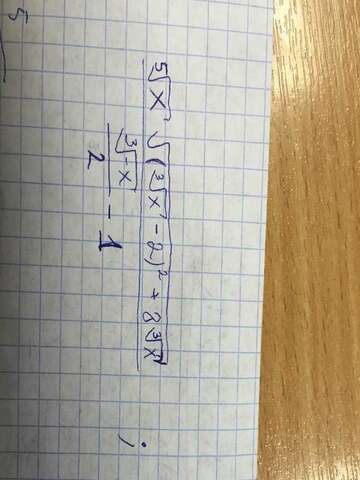 ⁵√x √(³√x - 2)² + 8 ³√x
³√-x
2
- 1 ;
5